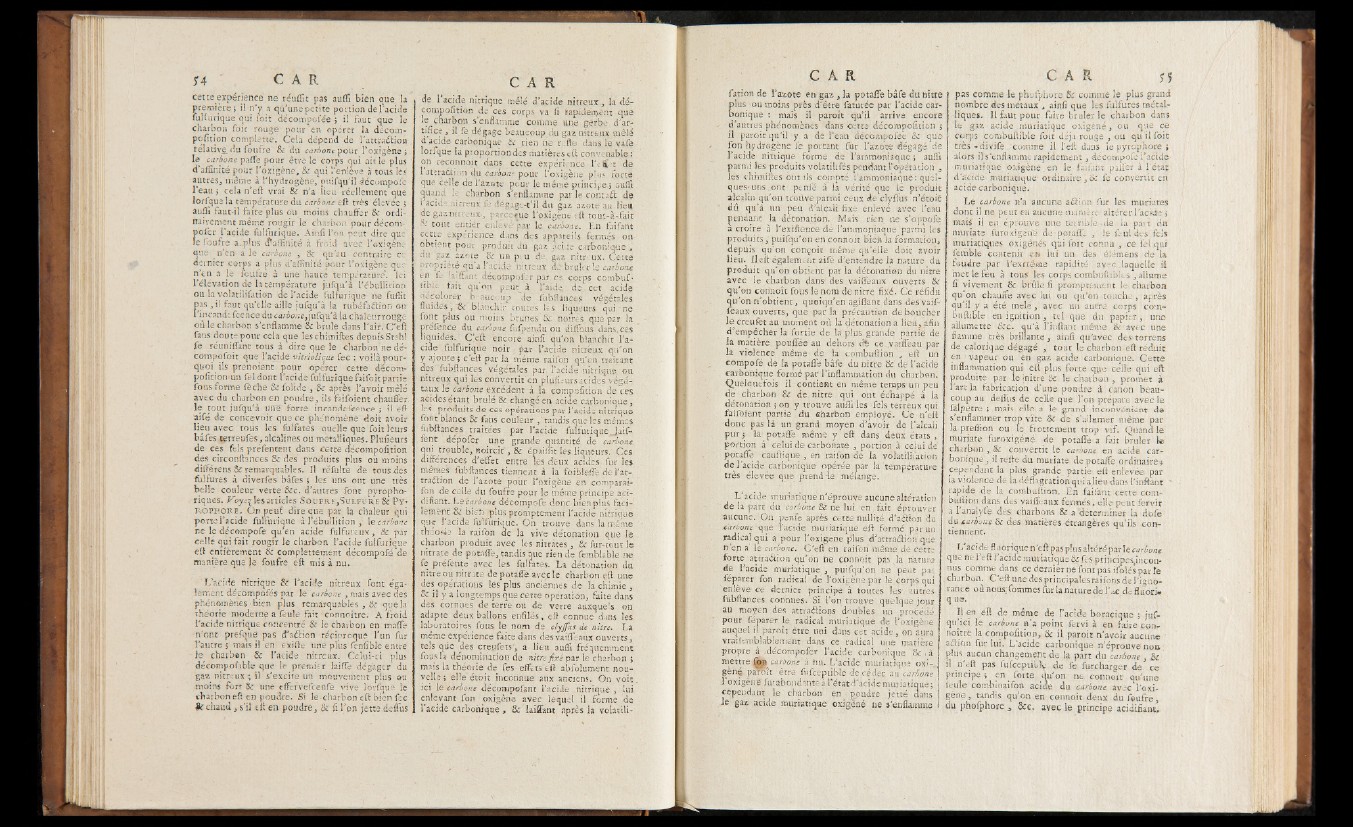 54 C A R
cette expérience ne réussit pas aussi bien que la
première ; il n'y a qu'une petite portion de l'acide
sulfurique qui soit décomposée ; il faut que le
charbon soit rouge pour en opérer la décom-
position complette. Cela dépend de l'attraction
relative du soufre & du carbone pour l'oxigène ;
le carbone passe pour être le corps qui ait le plus
d'affinité pour l'oxigène, & qui l'enlève à tous les
autres, même à l'hydrogène, puisqu'il décompose
l'eau ; cela n'est vrai & n'a lieu réellement que
lorsque la température du carbone est très élevée ;
aussi faut-il faire plus ou moins chauffer & ordi-
nairement même rougir le charbon pour décom-
poser l'acide sulfurique. Ainsi l'on peut dire que
le soufre a plus d'affinité à froid avec l'oxigène
que n'en a le carbone , & qu'au contraire ce
dernier corps a plus d'affinité pour l'oxigène que
n'en a le soufre à une haute température. Ici
l'élévation de la température jusqu'à l'ébullition
ou la volatilisation de l'acide sulfurique ne suffit
pas , il faut qu'elle aille jusqu'à la rubéfaction ou
l'incandescence du carbone, jusqu'à la chaleur rouge
où le charbon s'enflamme & brule dans l'air. C'est
sans doute pour cela que les chimistes depuis Stahl
se réunissant tous à dire que le charbon ne dé-
composoit que l'acide vitriolique sec : voilà pour-
quoi ils prenoient pour opérer cette décom-
position un sel dont l'acide sulfurique faisoit partie
sous forme sèche & solide , & après l'avoir mêlé
avec du charbon en poudre, ils faisoient chauffer
le tout jusqu'à une forte incandescence ; il est
aisé de concevoir que ce phénomène doit avoir
lieu avec tous les sulfates quelle que soit leurs
bâses terreuses, alcalines ou métalliques. Plusieurs
de ces sels présentent dans cette décomposition
des circonstances & des produits plus ou moins
différens & remarquables. Il résulte de tous des
sulfures à diverses bâses ; les uns ont une très
belle couleur verte &c. d'autres sont pyropho-
riques. Voyez les articles SOUFRE, SULFURE & PY-
ROPHORE. On peut dire que par la chaleur qui
porte l'acide sulfurique à l'ébullition , le carbone
ne le décompose qu'en acide sulfureux , & par
celle qui fait rougir le charbon l'acide sulfurique
est entièrement & complettement décomposé de
manière que le soufre est mis à nu.
L'acide nitrique & l'acide nitreux sont éga-
lement décomposés par le carbone , mais avec des
phénomènes bien plus remarquables , & que la
théorie moderne a seule fait connoitre. A froid
l'acide nitrique concentré & le charbon en masse
n'ont presque pas d'action réciproque l'un sur
l'autre ; mais il en existe une plus sensible entre
le charbon & l'acide nitreux. Celui-ci plus
décomposible que le premier laisse dégager du
gaz nitreux ; il s'excite un mouvement plus ou
moins fort & une effervescence vive lorsque le
charbon est en poudre. Si le charbon est bien sec
& chaud, s'il est en poudre, & si l'on jette dessus
C A R
de l'acide nitrique mêlé d'acide nitreux , la dé-
composition de ces corps va si rapidement que
le charbon s'enflamme comme une gerbe d'ar-
tifice , il se dégage beaucoup du gaz nitreux mêlé
d'acide carbonique & rien ne reste dans le vase
lorsque la proportion des matières est convenable :
on reconnoit dans cette expérience l'effet de
l'attraction du carbone pour l'oxigène plus forte
que celle de l'azote pour le même principe ; aussi
quand le charbon s'enflamme par le contact de
l'acide nitreux se dégage-t'il du gaz azote au lieu
de gaz nitreux, parceque l'oxigène est tout-à-fait
& tout entier enlevé par le carbone. En faisant
cette expérience dans des appareils fermés on
obtient pour produit du gaz acide carbonique ,
du gaz azote & un peu de gaz nitreux. Cette
propriété qu'a l'acide nitreux de bruler le carbone
en se laissant décomposer par ce corps combus-
tible fait qu'on peut à l'aide de cet acide
décolorer beaucoup de substances végétales
fluides , & blanchir toutes les liqueurs qui ne
sont plus ou moins brunes & noires que par la
présence du carbone suspendu ou diffous dans ces
liquides. C'est encore ainsi qu'on blanchit l'a-
cide sulfurique noir par l'acide nitreux qu'on
y ajoute ; c'est par la même raison qu'en traitant
des substances végétales par l'acide nitrique ou
nitreux qui les convertit en plusieurs acides végé-
taux le carbone excédent à la composition de ces
acides étant brulé & changé en acide carbonique ,
les produits de ces opérations par l'acide nitrique
sont blancs & sans couleur , tandis que les mêmes
substances traitées par l'acide sulfurique lais-
sent déposer une grande quantité de carbone
qui trouble, noircit , & épaissit les liqueurs. Ces
différences d'effet entre les deux acides sur les
mêmes substances tiennent à la foiblesse de l'at-
traction de l'azote pour l'oxigène en comparai-
son de celle du soufre pour le même principe aci-
difiant. Le carbone décompose donc bien plus faci-
lement & bien plus promptement l'acide nitrique
que l'acide sulfurique. On trouve dans la même
théorie la raison de la vive détonation que le
charbon produit avec les nitrates , & sur-tout le
nitrate de potasse, tandis que rien de semblable ne
se présente avec les sulfates. La détonation du
nitre ou nitrate de potasse avec le charbon est une
des opérations les plus anciennes de la chimie ,
& il y a longtemps que cette opération, faite dans
des cornues de terre ou de verre auxquels on
adapte deux ballons enfilés , est connue dans les
laboratoires sous le nom de clyssus de nitre. La
même expérience faite dans des vaisseaux ouverts ,
tels que des creusets, a lieu aussi fréquemment
sous la dénomination de nitre fixé par le charbon ;
mais la théorie de ses effets est absolument nou-
velle ; elle étoit inconnue aux anciens. On voit
ici le carbone décomposant l'acide nitrique , lui
enlevant son oxigène avec lequel il forme de
l'acide carbonique , & laissant après la volatili-
C A R
sation de l'azote en gaz , la potasse bâse du nitre
plus ou moins près d'être saturée par l'acide car-
bonique : mais il paroit qu'il arrive encore
d'autres phénomènes dans cette décomposition ;
il paroit qu'il y a de l'eau décomposée & que
son hydrogène se portant sur l'azote dégagé de
l'acide nitrique forme de l'ammoniaque ; aussi
parmi les produits volatilisés pendant l'opération ,
les chimistes ont-ils compté l'ammoniaque : quel-
ques-uns ont pensé à la vérité que le produit
alcalin qu'on trouve parmi ceux de clyssus n'étoit
dû qu'à un peu d'alcali fixe enlevé avec l'eau
pendant la détonation. Mais rien ne s'oppose
à croire à l'existence de l'ammoniaque parmi les
produits, puisqu'on en connoit bien la formation,
depuis qu'on conçoit même qu'elle doit avoir
lieu. Il est également aisé d'entendre la nature du
produit qu'on obtient par la détonation du nitre
avec le charbon dans des vaisseaux ouverts &
qu'on connoit sous le nom de nitre fixé. Ce résidu
qu'on n'obtient, quoiqu'en agissant dans des vais-
seaux ouverts, que par la précaution de boucher
le creuset au moment où la détonation a lieu, afin
d'empêcher la sortie de la plus grande partie de
la matière poussée au dehors de ce vaisseau par
la violence même de la combustion , est un
composé de la potasse bâse du nitre & de l'acide
carbonique formé par l'inflammation du charbon.
Quelquefois il contient en même temps un peu
de charbon & de nitre qui ont échappé à la
détonation ; on y trouve aussi les sels terreux qui
faisoient partie du charbon employé. Ce n'est
donc pas là un grand moyen d'avoir de l'alcali
pur ; la potasse même y est dans deux états ,
portion à celui de carbonate , portion à celui de
potasse caustique , en raison de la volatilisation
de l'acide carbonique opérée par la température
très élevée que prend le mélange.
L'acide muriatique n'éprouve aucune altération
de la part du carbone & ne lui en fait éprouver
aucune. On pense après cette nullité d'action du
carbone que l'acide muriatique est formé par un
radical qui a pour l'oxigène plus d'attraction que
n'en a le carbone. C'est en raison même de cette
forte attraction qu'on ne connoit pas la nature
de l'acide muriatique , puisqu'on ne peut pas
séparer son radical de l'oxigène par le corps qui
enlève ce dernier principe à toutes les autres
substances connues. Si l'on trouve quelque jour
au moyen des attractions doubles un procédé
pour séparer le radical muriatique de l'oxigène
auquel il paroit être uni dans cet acide, on aura
vraisemblablement dans ce radical une matière
propre à décomposer l'acide carbonique & à
mettre son carbone à nu. L'acide muriatique oxi-
géné paroit être susceptible de céder au carbone
l'oxigène surabondante à l'état d'acide muriatique ;
cependant le charbon en poudre jetté dans
le gaz acide muriatique oxigéné ne s'enflamme
C A R 55
pas comme le phosphore & comme le plus grand
nombre des métaux , ainsi que les sulfures métal-
liques. Il faut pour faire bruler le charbon dans
le gaz acide muriatique oxigéné, ou que ce
corps combustible soit déjà rouge , ou qu'il soit
très - divisé comme il l'est dans le pyrophore ;
alors il s'enflamme rapidement , décompose l'acide
muriatique oxigéné en le faisant passer à l'état
d'acide muriatique ordinaire , & se convertit en
acide carbonique.
Le carbone n'a aucune action sur les muriates
dont il ne peut en aucune manière altérer l'acide ;
mais il en éprouve une terrible de la part du
muriate suroxigéné de potasse , le seul des sels
muriatiques oxigénés qui soit connu , ce sel qui
semble contenir en lui un des élémens de la
foudre par l'extrême rapidité avec laquelle il
met le feu à tous les corps combustibles , allume
si vivement & brûle si promptement le charbon
qu'on chauffe avec lui ou qu'on touche , après
qu'il y a été mêlé , avec un autre corps com-
bustible en ignition , tel que du papier , une
allumette &c. qu'à l'instant même & avec une
flamme très brillante, ainsi qu'avec des torrens
de calorique dégagé , tout le charbon est réduit
en vapeur ou en gaz acide carbonique. Cette
inflammation qui est plus forte que celle qui est
produite par le nitre & le charbon , promet à
l'art la fabrication d'une poudre à canon beau-
coup au dessus de celle que l'on prépare avec le
salpêtre ; mais elle a le grand inconvénient de
s'enflammer trop vite & de s'allumer même par
la pression ou le frottement trop vif. Quand le
muriate suroxigéné de potasse a fait bruler le
charbon , & convertit le carbone en acide car-
bonique , il reste du muriate de potasse ordinaire ;
cependant la plus grande partie est enlevée par
la violence de la déflagration qui a lieu dans l'instant
rapide de la combustion. En faisant cette com-
bustion dans des vaisseaux fermés, elle peut servir
à l'analyse des charbons & à déterminer la dose
du carbone & des matières étrangères qu'ils con-
tiennent.
L'acide fluorique n'est pas plus altéré par le carbone
que ne l'est l'acide muriatique & ses principes incon-
nus comme dans ce dernier ne sont pas isolés par le
charbon. C'est une des principales raisons de l'igno-
rance où nous sommes sur la nature de l'acide fluori-
que.
Il en est de même de l'acide boracique ; jus-
qu'ici le carbone n'a point servi à en faire con-
noître la composition, & il paroit n'avoir aucune
action sur lui. L'acide carbonique n'éprouve non
plus aucun changement de la part du carbone , &
il n'est pas susceptible de se surcharger de ce
principe ; en sorte qu'on ne connoit qu'une
seule combinaison acide du carbone avec l'oxi-
gène , tandis qu'on en connoit deux du soufre ,
du phosphore , &c. avec le principe acidifiant.